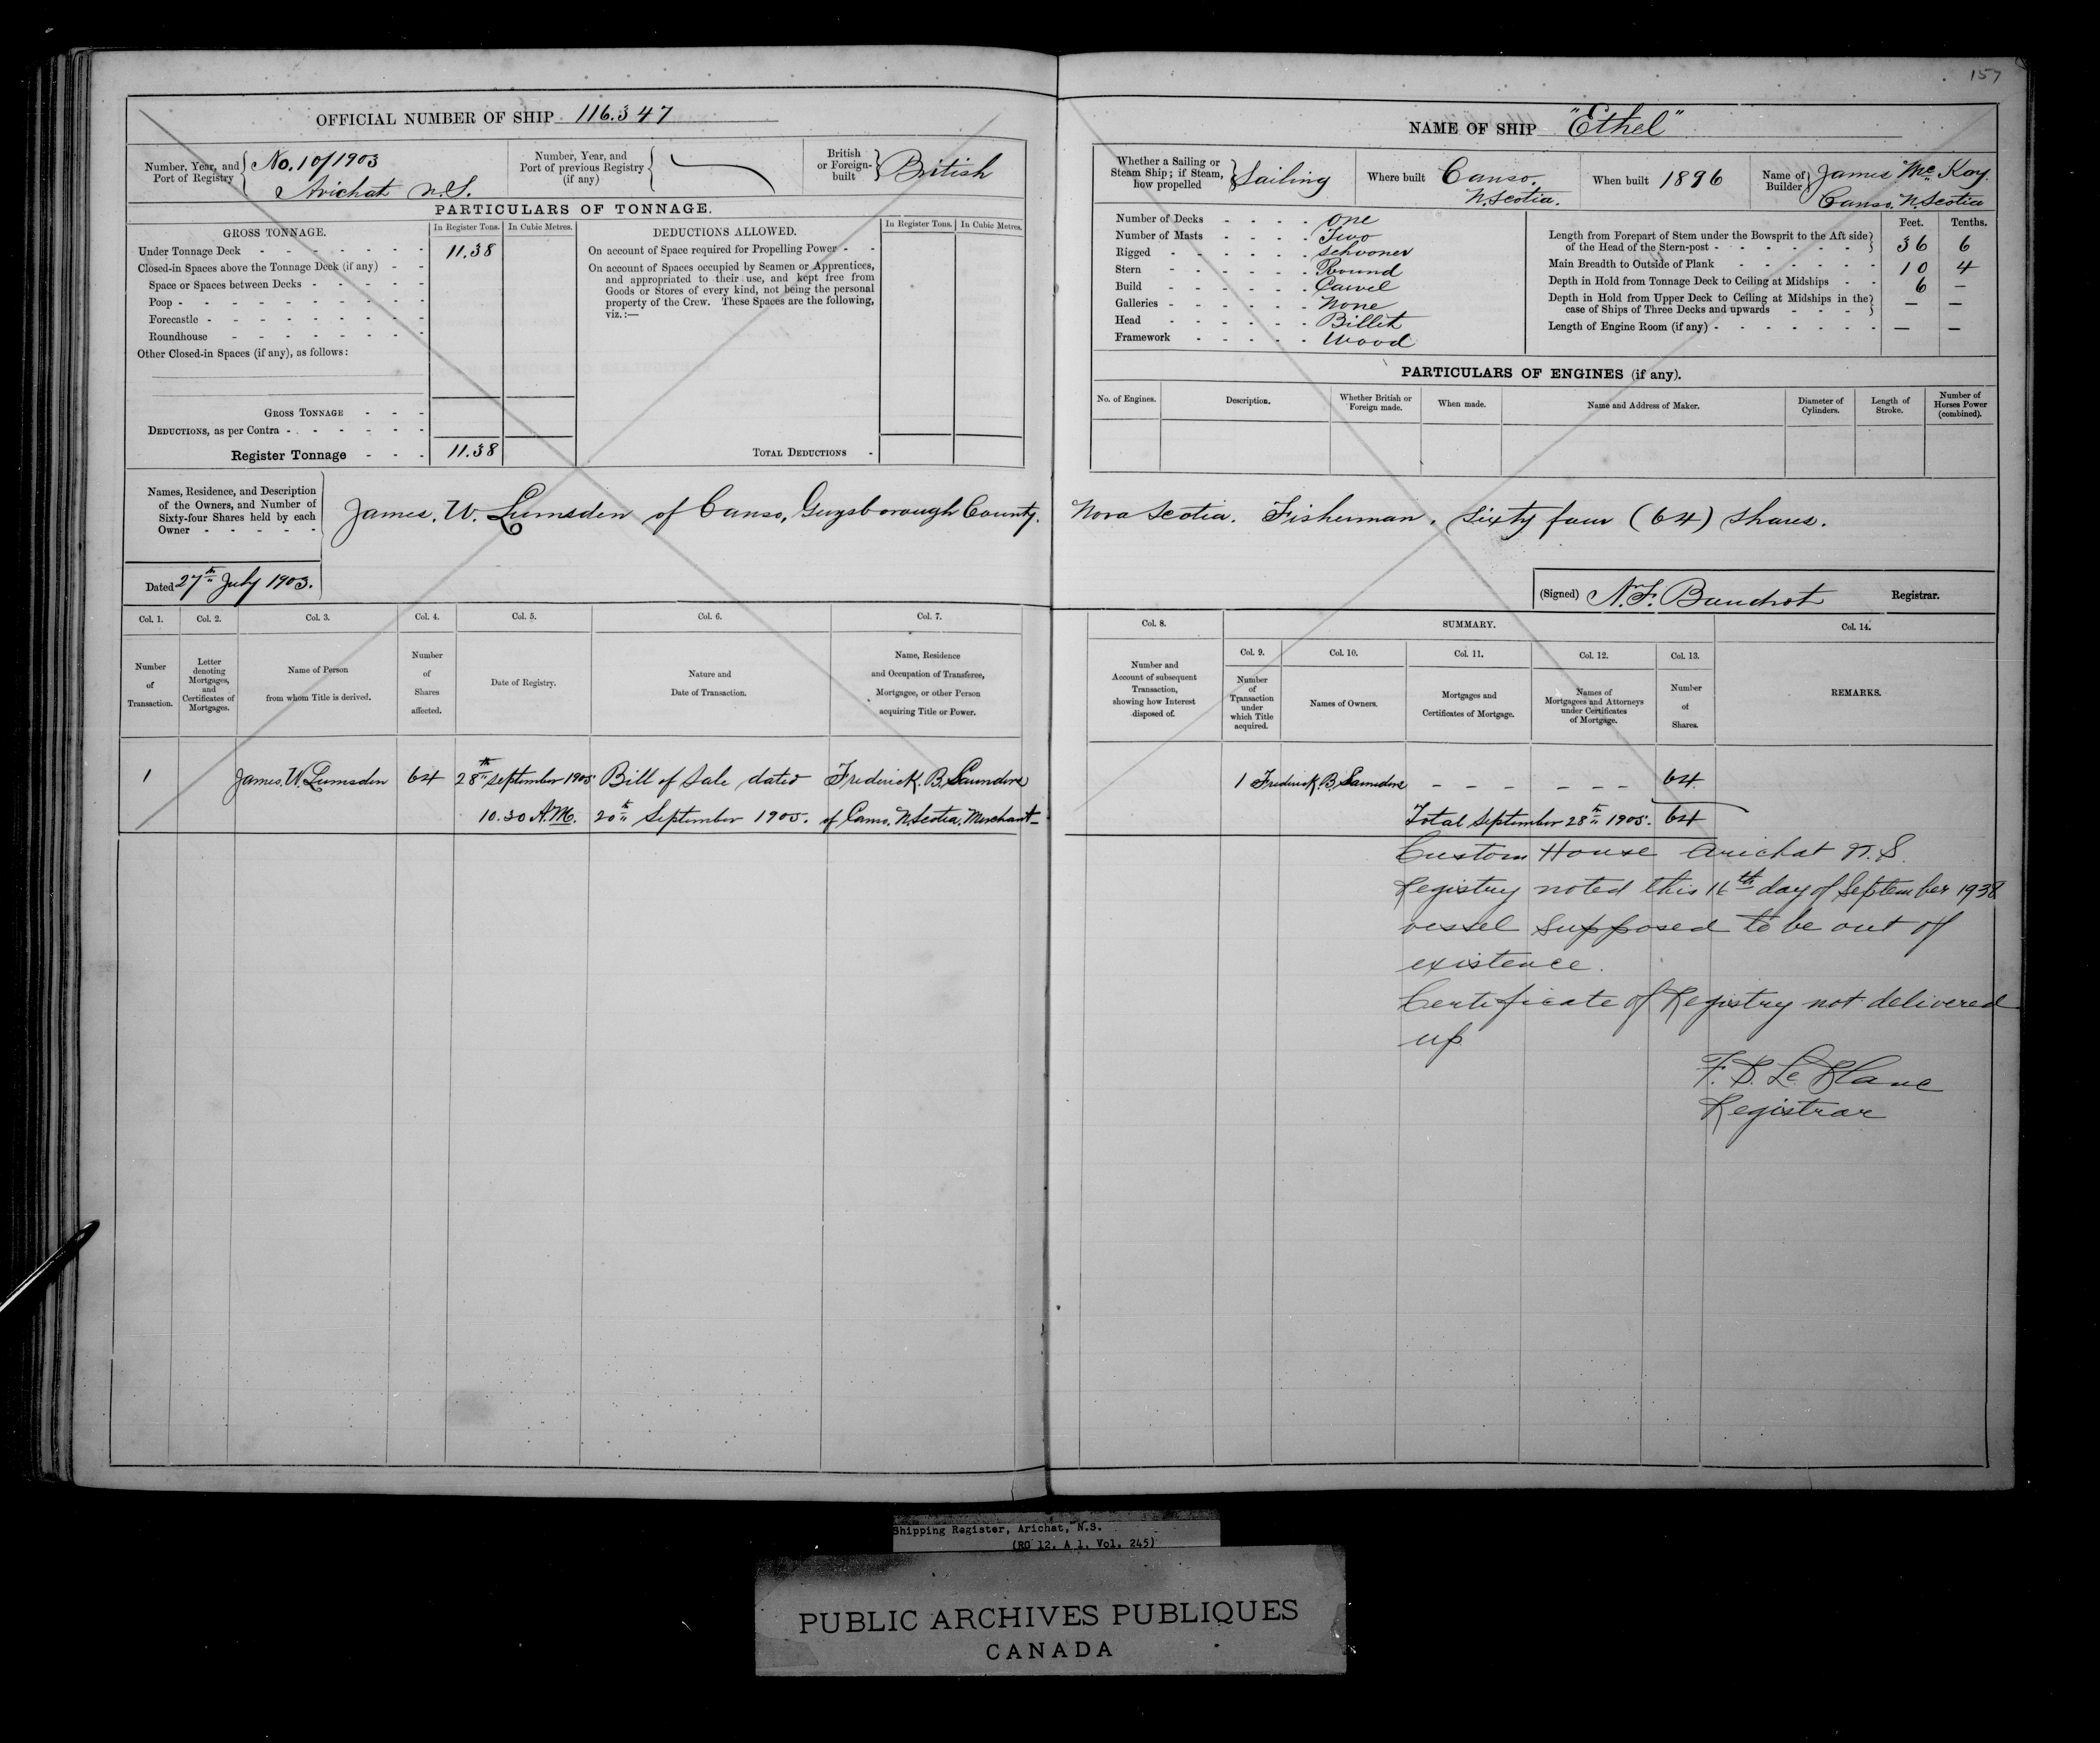 157
OFFICIAL NUMBER OF SHIP 116.347
Number, Year, and Port of Registry No. 10/1903 Arichat N.S.
Number, Year, and Port of previous Registry (if any)
British or Foreign-built British
PARTICULARS OF TONNAGE.
GROSS TONNAGE.
In Register Tons.
In Cubic Metres.
Under Tonnage Deck - - - - - - - 11.38
Closed-in Spaces above the Tonnage Deck (if any) - -
Space or Spaces between Decks - - - - -
Poop - - - - - - - - - -
Forecastle - - - - - - - - -
Roundhouse - - - - - - - -
Other Closed-in Spaces (if any), as follows:
GROSS TONNAGE - - -
DEDUCTIONS, as per Contra - - - - - -
Register Tonnage - - - 11.38
DEDUCTIONS ALLOWED.
In Register Tons.
In Cubic Metres.
On account of Space required for Propelling Power - -
On account of Spaces occupied by Seamen or Apprentices,
and appropriated to their use, and kept free from
Goods or Stores of every kind, not being the personal
property of the Crew. These Spaces are the following,
viz.:—
TOTAL DEDUCTIONS -
NAME OF SHIP "Ethel"
Whether a Sailing or Steam Ship; if Steam, how propelled Sailing
Where built Canso, N. Scotia.
When built 1896
Name of Builder James McKay. Canso, N Scotia
Number of Decks - - - - one
Number of Masts - - - - Two
Rigged - - - - - - schooner
Stern - - - - - - Round
Build - - - - - - Carvel
Galleries - - - - - - None
Head - - - - - - Billet
Framework - - - - - Wood
Feet. Tenths.
Length from Forepart of Stem under the Bowsprit to the Aft side
of the Head of the Stern-post - - - - - - - 36 6
Main Breadth to Outside of Plank - - - - - - 10 4
Depth in Hold from Tonnage Deck to Ceiling at Midships - - 6 —
Depth in Hold from Upper Deck to Ceiling at Midships in the
case of Ships of Three Decks and upwards - - - - — —
Length of Engine Room (if any) - - - - - - - - — —
PARTICULARS OF ENGINES (if any).
No. of Engines.
Description.
Whether British or Foreign made.
When made.
Name and Address of Maker.
Diameter of Cylinders.
Length of Stroke.
Number of Horses Power (combined).
Names, Residence, and Description
of the Owners, and Number of
Sixty-four Shares held by each
Owner - - - - -
James. W. Lumsden of Canso, Guysborough County. Nova Scotia. Fisherman. Sixty four (64) shares.
Dated 27th July 1903.
(Signed) N. F. Registrar.
Col. 1. Col. 2. Col. 3. Col. 4. Col. 5. Col. 6. Col. 7.
Number of Transaction.
Letter denoting Mortgages, and Certificates of Mortgages.
Name of Person from whom Title is derived.
Number of Shares affected.
Date of Registry.
Nature and Date of Transaction.
Name, Residence and Occupation of Transferee, Mortgagee, or other Person acquiring Title or Power.
Col. 8.
SUMMARY.
Col. 14.
Col. 9. Col. 10. Col. 11. Col. 12. Col. 13.
Number and Account of subsequent Transaction, showing how Interest disposed of.
Number of Transaction under which Title acquired.
Names of Owners.
Mortgages and Certificates of Mortgage.
Names of Mortgagees and Attorneys under Certificates of Mortgage.
Number of Shares.
REMARKS.
1 James. W. Lumsden 64 28th September 1905 Bill of Sale dated Frederick. B. Saunders
10.30 A.M. 20th September 1905. of Canso. N. Scotia. Merchant—
1 Frederick. B. Saunders - - - - - - 64
Total September 28th 1905. 64
Custom House Arichat N. S.
Registry noted this 16th day of September 1938
vessel supposed to be out of
existence.
Certificate of Registry not delivered
up
F. D. Le Blanc
Registrar
Shipping Register, Arichat, N.S.
(RG 12. A 1. Vol. 245)
PUBLIC ARCHIVES PUBLIQUES
CANADA